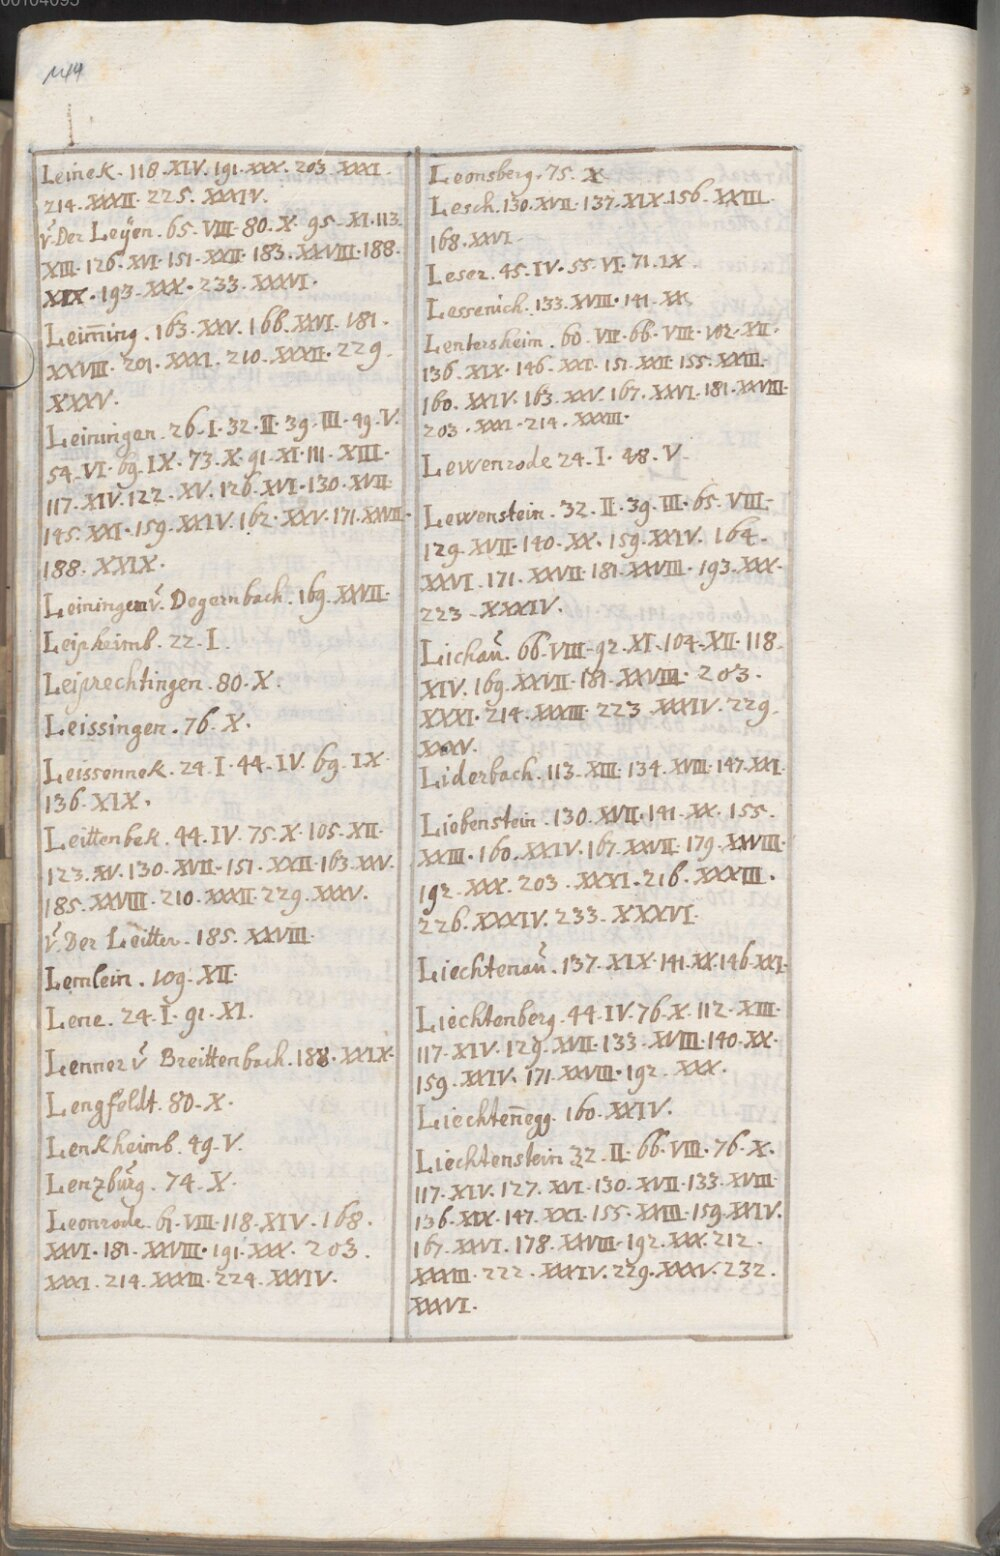 Leinek. 118. XIV. 191. XXX. 203. XXXI.
214. XXXII. 225. XXXIV.
v. Der Leÿen. 65. VIII. 80. X. 95. XI. 113.
XIII. 126. XVI. 151. XXII. 183. XXVIII. 188.
XIX. 193. XXX. 233. XXXVI.
Leim̄ing. 163. XXV. 166. XXVI. 181.
XXVIII. 201. XXXI. 210. XXXII. 229.
XXXV.
Leiningen. 26. I. 32. II. 39. III. 49. V.
54. VI. 69. IX. 73. X. 91. XI. 111. XIII.
117. XIV. 122. XV. 126. XVI. 130. XVII.
145. XXI. 159. XXIV. 162. XXV. 171. XXVII.
188. XXIX.
Leiningen v. Degernbach. 169. XXVII.
Leipheimb. 22. I.
Leiprechtingen. 80. X.
Leissingen. 76. X.
Leissennek. 24. I. 44. IV. 69. IX.
136. XIX.
Leittenbek. 44. IV. 75. X. 105. XII.
123. XV. 130. XVII. 151. XXII. 163. XXV.
185. XXVIII. 210. XXXII. 229. XXXV.
v. Der Leitter. 185. XXVIII.
Lemlein. 109. XII.
Lene. 24. I. 91. XI.
Lenner v Breittenbach. 188. XXIX.
Lengfeldt. 80. X.
Lenkheimb. 49. V.
Lenzbŭrg. 74. X.
Leonrode. 61. VIII. 118. XIV. 168.
XXVI. 181. XXVIII. 191. XXX. 203.
XXXI. 214. XXXIII. 224. XXXIV.
Leonsberg. 75. X
Lesch. 130. XVII. 137. XIX. 156. XXIII.
168. XXVI.
Leser. 45. IV. 55. VI. 71. IX.
Lessenich. 133. XVIII. 141. XX.
Lentersheim. 60. VII. 66. VIII. 102. XII.
136. XIX. 146. XXI. 151. XXII. 155. XXIII.
160. XXIV. 163. XXV. 167. XXVI. 181. XXVIII.
203. XXXI. 214. XXXIII.
Lewenrode 24. I. 48. V.
Lewenstein. 32. II. 39. III. 65. VIII.
129. XVII. 140. XX. 159. XXIV. 164.
XXVI. 171. XXVII. 181. XXVIII. 193. XXX.
223. XXXIV.
Lichaŭ. 66. VIII. 92. XI. 104. XII. 118.
XIV. 169. XXVII. 181. XXVIII. 203.
XXXI. 214. XXXIII. 223. XXXIV. 229.
XXXV.
Liderbach. 113. XIII. 134. XVIII. 147. XXI.
Liebenstein. 130. XVII. 141. XX. 155.
XXIII. 160. XXIV. 167. XXVII. 179. XXVIII.
192. XXX. 203. XXXI. 216. XXXIII.
226. XXXIV. 233. XXXVI.
Liechtenaŭ. 137. XIX. 141. XX. 146. XXI.
Liechtenberg. 44. IV. 76. X. 112. XIII.
117. XIV. 129. XVII. 133. XVIII. 140. XX.
159. XXIV. 171. XXVIII. 192. XXX.
Liechten̄egg. 160. XXIV.
Liechtenstein 32. II. 66. VIII. 76. X.
117. XIV. 127. XVI. 130. XVII. 133. XVIII.
136. XIX. 147. XXI. 155. XXIII. 159. XXIV.
167. XXVI. 178. XXVIII. 192. XXX. 212.
XXXIII. 222. XXXIV. 229. XXXV. 232.
XXXVI.